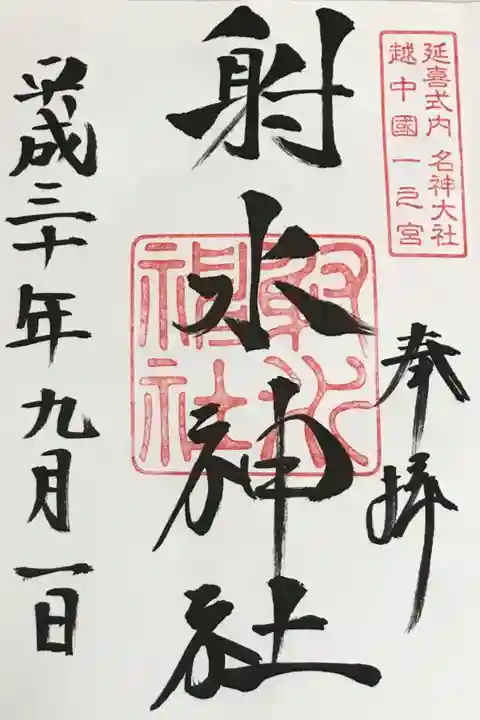 延喜式内 名神大社
越中國一之宮
奉拝
射水神社
射水神社
平成三十年九月一日